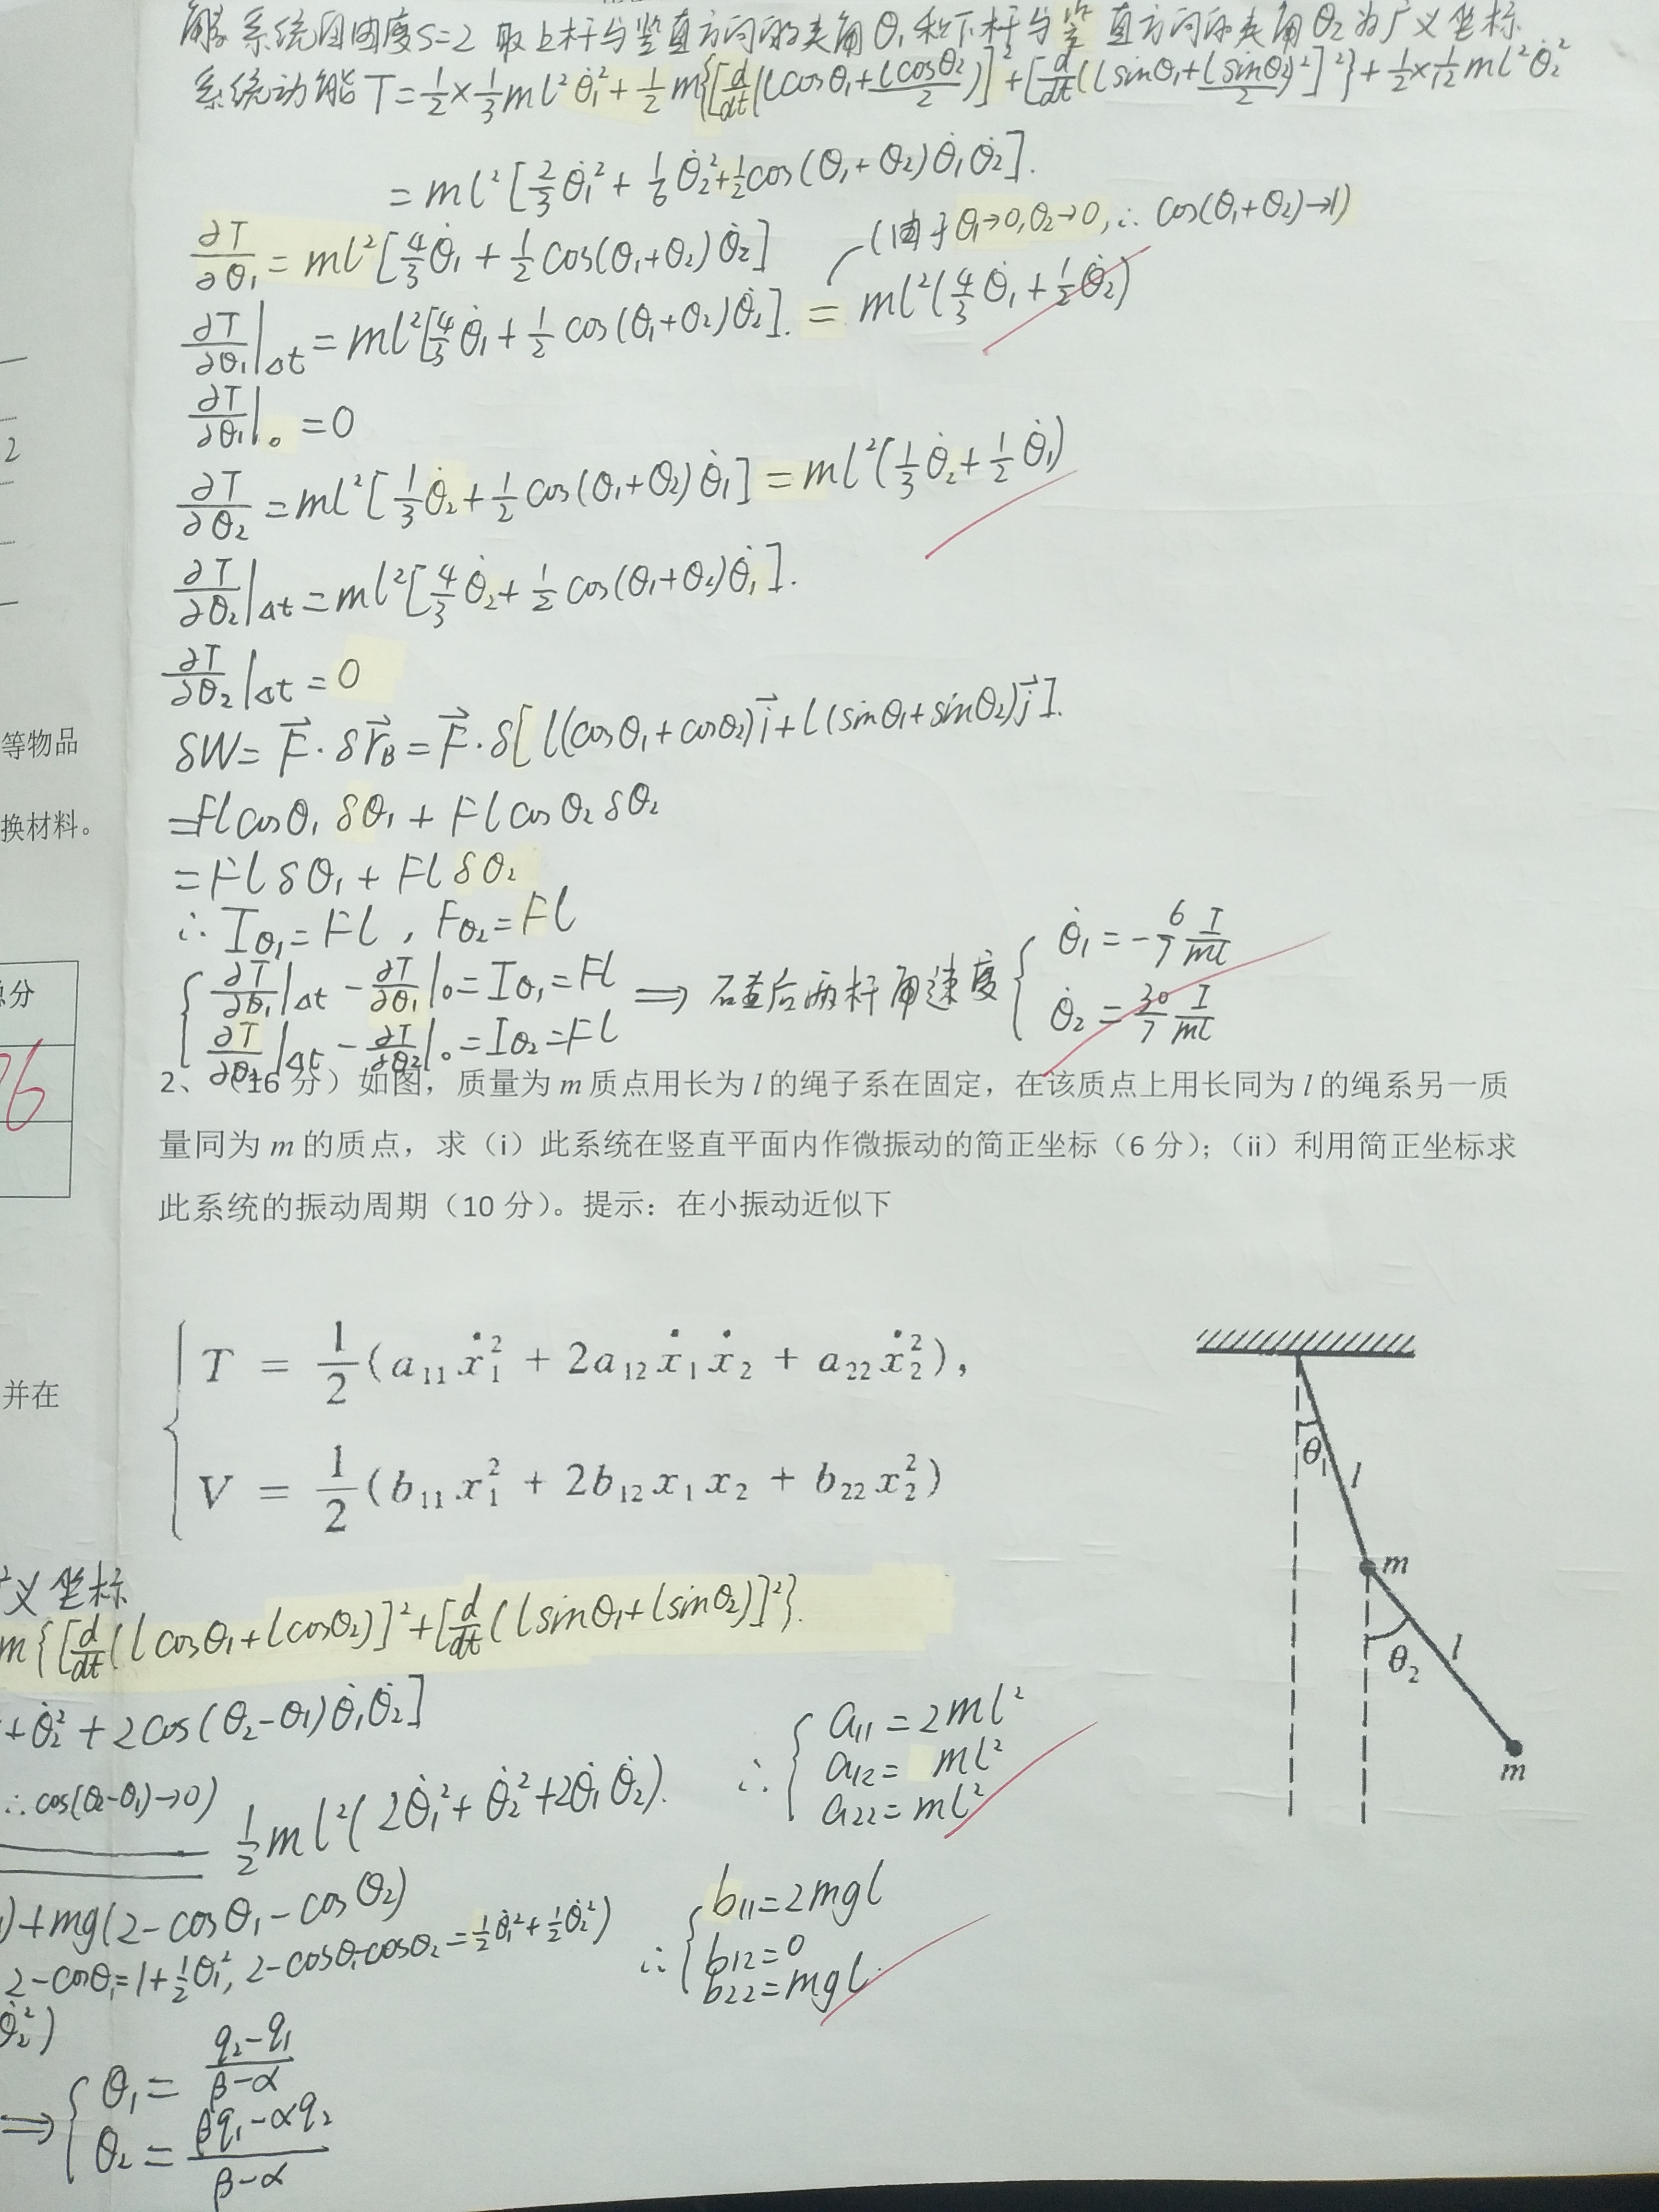 解 系统自由度S=2 取上杆与竖直方向的夹角θ₁和下杆与竖直方向的夹角θ₂为广义坐标
系统动能T=½×⅓ml²θ̇₁²+½m{[d/dt(lcosθ₁+lcosθ₂/2)]²+[d/dt(lsinθ₁+lsinθ₂/2)²]²}+½×1/12ml²θ̇₂²
=ml²[2/3θ̇₁²+1/6θ̇₂²+½cos(θ₁+θ₂)θ̇₁θ̇₂].
(由于θ₁→0,θ₂→0,∴cos(θ₁+θ₂)→1)
∂T/∂θ̇₁=ml²[4/3θ̇₁+½cos(θ₁+θ₂)θ̇₂]
∂T/∂θ₁|Δt=ml²[4/3θ̇₁+½cos(θ₁+θ₂)θ̇₂].=ml²(4/3θ̇₁+½θ̇₂)
∂T/∂θ₁|₀=0
∂T/∂θ₂=ml²[1/3θ̇₂+½cos(θ₁+θ₂)θ̇₁]=ml²(1/3θ̇₂+½θ̇₁)
∂T/∂θ₂|Δt=ml²[4/3θ̇₂+½cos(θ₁+θ₂)θ̇₁].
∂T/∂θ₂|Δt=0
δW=F⃗·δr⃗B=F⃗·δ[l(cosθ₁+cosθ₂)i⃗+l(sinθ₁+sinθ₂)j⃗].
=Flcosθ₁δθ₁+Flcosθ₂δθ₂
=Flδθ₁+Flδθ₂
∴Iθ₁=Fl,Fθ₂=Fl
{∂T/∂θ₁|Δt-∂T/∂θ₁|₀=Iθ₁=Fl ⇒ 碰后两杆角速度 {θ̇₁=-6/7 I/ml
∂T/∂θ₂|Δt-∂T/∂θ₂|₀=Iθ₂=Fl θ̇₂=30/7 I/ml
2、（16分）如图，质量为m质点用长为l的绳子系在固定，在该质点上用长同为l的绳系另一质
量同为m的质点，求（i）此系统在竖直平面内作微振动的简正坐标（6分）；（ii）利用简正坐标求
此系统的振动周期（10分）。提示：在小振动近似下
{T = 1/2(a₁₁ẋ₁² + 2a₁₂ẋ₁ẋ₂ + a₂₂ẋ₂²),
V = 1/2(b₁₁x₁² + 2b₁₂x₁x₂ + b₂₂x₂²)
θ₁
l
m
θ₂
l
m
义坐标
m{[d/dt(lcosθ₁+lcosθ₂)]²+[d/dt(lsinθ₁+lsinθ₂)]²}.
+θ̇₂²+2cos(θ₂-θ₁)θ̇₁θ̇₂]
∴cos(θ₂-θ₁)→0)
½ml²(2θ̇₁²+θ̇₂²+2θ̇₁θ̇₂).
∴{a₁₁=2ml²
a₁₂=ml²
a₂₂=ml²
)+mg(2-cosθ₁-cosθ₂)
2-cosθ₁=1+½θ₁²,2-cosθ₁-cosθ₂=½θ̇₁²+½θ̇₂²)
∴{b₁₁=2mgl
b₁₂=0
b₂₂=mgl.
θ̇₂²)
⇒{θ₁=(q₂-q₁)/(β-α)
θ₂=(βq₁-αq₂)/(β-α)
2
等物品
换材料。
总分
76
并在